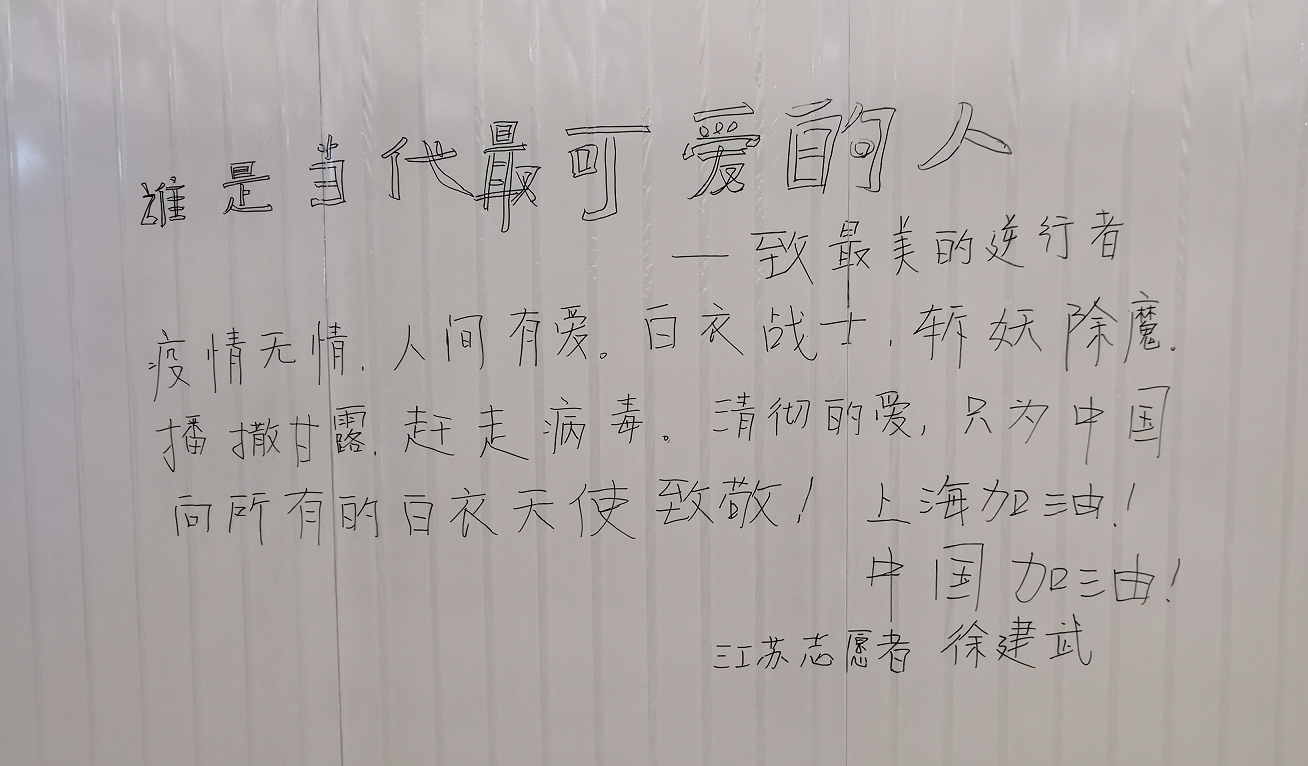 谁是当代最可爱的人
—致最美的逆行者
疫情无情.人间有爱。白衣战士,斩妖除魔.
播撒甘露.赶走病毒。清彻的爱,只为中国
向所有的白衣天使致敬!上海加油!
中国加油!
江苏志愿者 徐建武